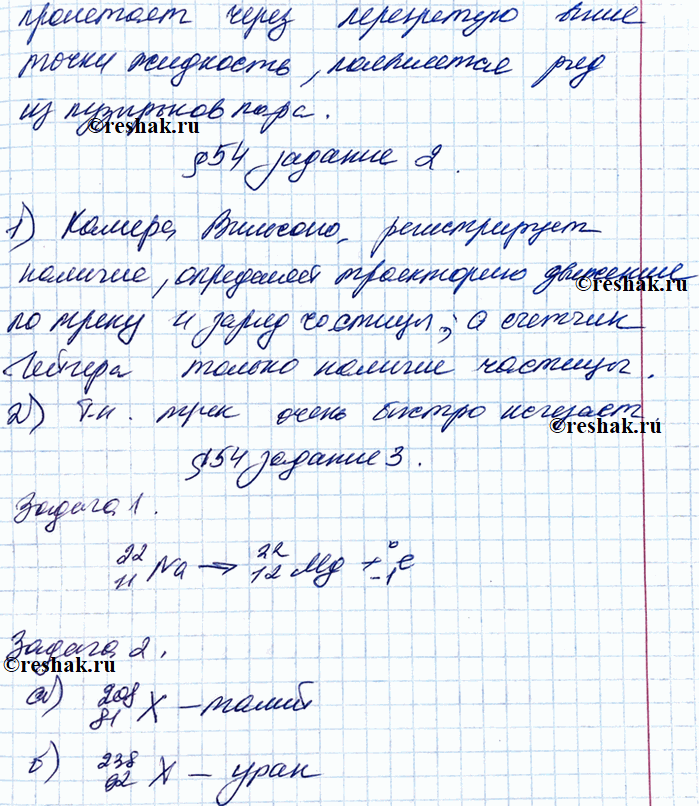 пролетает через перегретую выше
точки жидкость, появляется ряд
из пузырьков пара.
©reshak.ru
§54 задание 2.
1) Камера Вильсона, регистрирует
наличие, определяет траекторию движение
©reshak.ru
по треку и заряд частицы; а счетчик
Гейгера только наличие частицы.
2) Т.к. трек очень быстро исчезает
©reshak.ru
§54 задание 3.
Задача 1.
²²₁₁Na → ²²₁₂Mg + ⁰₋₁e
Задача 2.
©reshak.ru
а) ²⁰⁸₈₁X – талий
б) ²³⁸₉₂X – уран